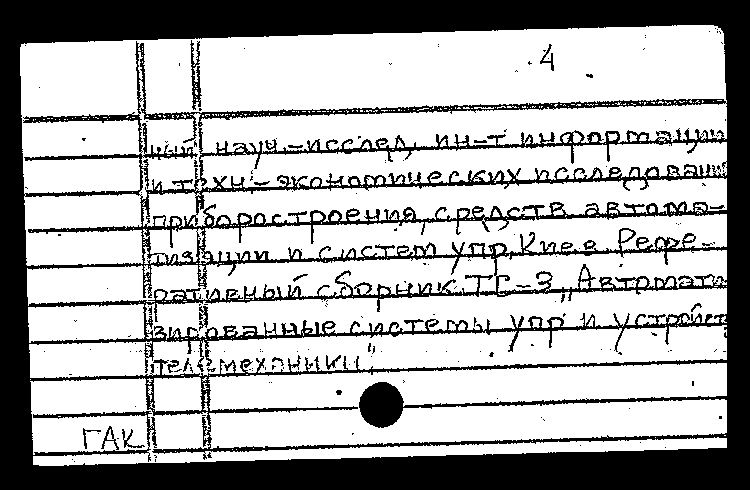 4
ный науч.-исслед. ин-т информации
и техн.-экономических исследований
приборостроения, средств автома-
тизации и систем упр. Киев. Рефе-
ративный сборник. ТС-3 „Автомати
зированные системы упр и устройст
телемеханики"
ГАК